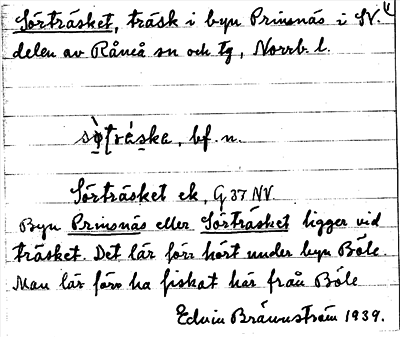 Sörträsket, träsk i byn Prinsnäs i SV.
delen av Råneå sn och tg, Norrb. l.
sø̀ʈräska, bf. n.
Sörträsket ek, G 37 NV
Byn Prinsnäs eller Sörträsket ligger vid
träsket. Det lär förr hört under byn Böle.
Man lär förr ha fiskat här från Böle
Edvin Brännström 1939.